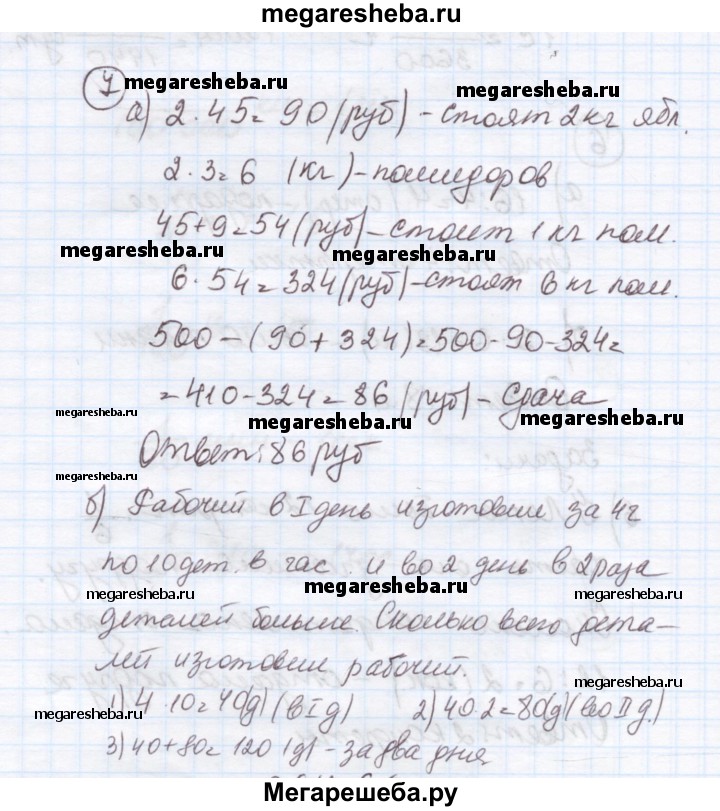 megaresheba.ru
7 megaresheba.ru megaresheba.ru
а) 2·45=90 (руб) - стоят 2 кг ябл.
2·3=6 (кг) - помидоров
45+9=54 (руб) - стоит 1 кг пом.
megaresheba.ru megaresheba.ru
6·54=324 (руб) - стоят 6 кг пом.
500-(90+324)=500-90-324=
=410-324=86 (руб) - сдача
megaresheba.ru megaresheba.ru megaresheba.ru
Ответ: 86 руб
megaresheba.ru
б) Рабочий в I день изготовил за 4г
по 10 дет. в час и во 2 день в 2 раза
megaresheba.ru megaresheba.ru megaresheba.ru
деталей больше. Сколько всего дета-
лей изготовил рабочий.
megaresheba.ru
1) 4·10=40(д) (в I д) 2) 40·2=80(д) (во II д.)
megaresheba.ru megaresheba.ru
3) 40+80=120 (д) - за два дня.
Мегарешеба.ру